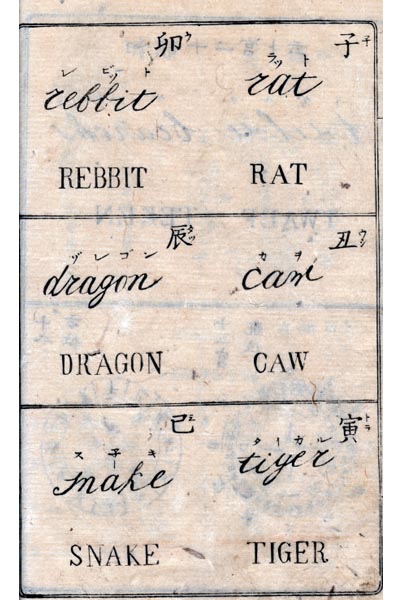 子 子
ラット
rat
RAT
丑 ウシ
カヲ
caw
CAW
寅 トラ
ターガル
tiger
TIGER
卯 ウ
レビット
rebbit
REBBIT
辰 タツ
ヅレゴン
dragon
DRAGON
巳 ミ
ス子ーキ
snake
SNAKE